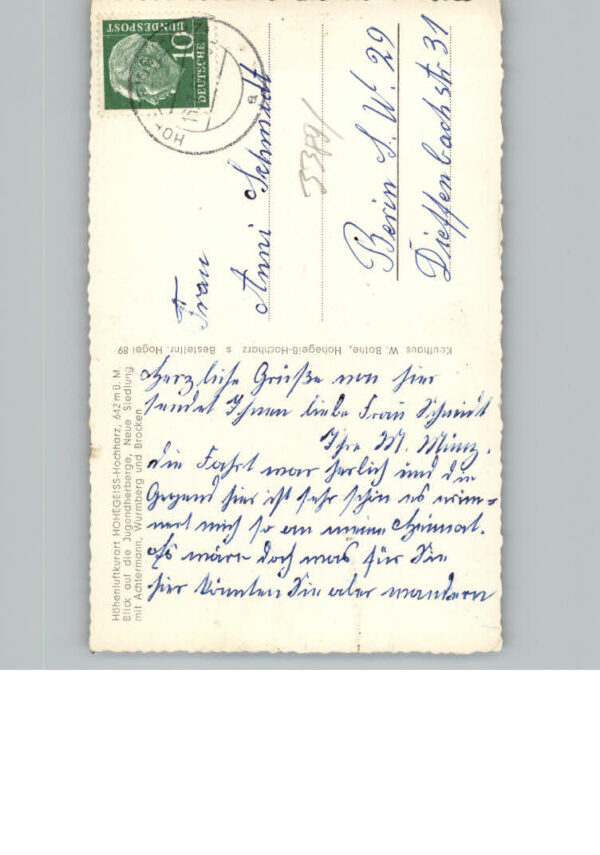 Höhenluftkurort HOHEGEISS-Hochharz, 642 m ü. M.
Blick auf die Jugendherberge, Neue Siedlung
mit Achtermann, Wurmberg und Brocken
Herzliche Grüße von hier
sendet Ihnen liebe Frau Schmidt
Ihre M. Münz.
die Fahrt war herlich und die
Gegend hier ist sehr schön es erin=
nert mich so an meine Heimat.
Es wäre doch was für Sie
hier könnten Sie aber wandern
Kaufhaus W. Bothe, Hohegeiß-Hochharz s Bestellnr. Hogei 89
DEUTSCHE
BUNDESPOST
10
HOH
a
Frau
Anni Schmidt
Berin S.W. 29
Dieffenbachstr 31